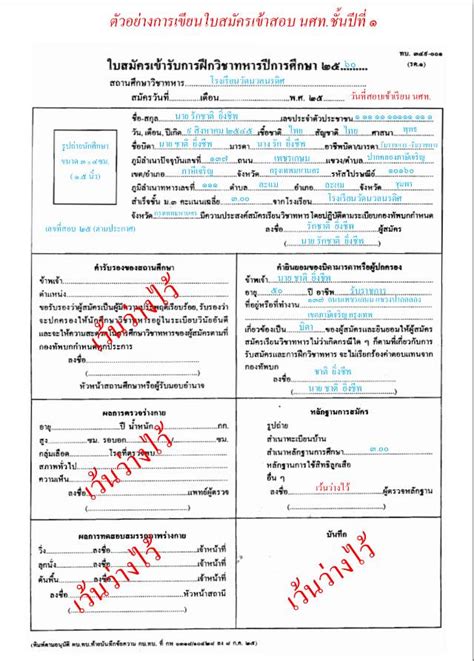 ตัวอย่างการเขียนใบสมัครเข้าสอบ นศท.ชั้นปีที่ ๑
ทบ. ๓๔๙-๐๐๑
(รด.๑)
ใบสมัครเข้ารับการฝึกวิชาทหารปีการศึกษา ๒๕๖๐
สถานศึกษาวิชาทหาร โรงเรียนวัดนวลนรดิศ
สมัครวันที่ เดือน พ.ศ. ๒๕ วันที่สอบเข้าเรียน นศท.
รูปถ่ายนักศึกษา
ขนาด ๓×๔ ซม.
(๑.๕ นิ้ว)
เลขที่สอบ ๒๕ (ตามประกาศ)
ชื่อ-สกุล นาย รักชาติ ยิ่งชีพ เลขประจำตัวประชาชน
วัน, เดือน, ปีเกิด ๙ สิงหาคม ๒๕๔๕ เชื้อชาติ ไทย สัญชาติ ไทย ศาสนา พุทธ
ชื่อบิดา นาย ชาติ ยิ่งชีพ มารดา นาง รัก ยิ่งชีพ อาชีพบิดา/มารดา
ภูมิลำเนาปัจจุบันเลขที่ ๑๓๗ ถนน เพชรเกษม แขวง/ตำบล ปากคลองภาษีเจริญ
เขต/อำเภอ ภาษีเจริญ จังหวัด กรุงเทพมหานคร รหัสไปรษณีย์ ๑๐๑๖๐
ภูมิลำเนาทหารเลขที่ ๑๑๑ ตำบล ละแม อำเภอ ละแม จังหวัด ชุมพร
สำเร็จชั้น ม.๓ คะแนนเฉลี่ย ๓.๐๐ จากโรงเรียน โรงเรียนวัดนวลนรดิศ
จังหวัด กรุงเทพมหานคร มีความประสงค์สมัครเรียนวิชาทหาร โดยปฏิบัติตามระเบียบกองทัพบกกำหนด
ลงชื่อ รักชาติ ยิ่งชีพ ผู้สมัคร
( นาย รักชาติ ยิ่งชีพ )
คำรับรองของสถานศึกษา
ข้าพเจ้า
ตำแหน่ง
ขอรับรองว่าผู้สมัครเป็นผู้มีความประพฤติเรียบร้อย, รับรองว่า
จะปกครองให้นักศึกษาวิชาทหารอยู่ในระเบียบวินัยอันดี
กองทัพบกกำหนดทุกประการ
ลงชื่อ
หัวหน้าสถานศึกษาหรือผู้รับมอบอำนาจ
เว้นว่างไว้
คำยินยอมของบิดามารดาหรือผู้ปกครอง
ข้าพเจ้า นาย ชาติ ยิ่งชีพ
อายุ ๕๐ ปี อาชีพ รับราชการ
ที่อยู่หรือที่ทำงาน ๑๓๗ ถนนเพชรเกษม แขวงปากคลอง
เขตภาษีเจริญ กรุงเทพ
เกี่ยวข้องเป็น บิดา ของผู้สมัครและยินยอมให้ผู้สมัคร
สมัครเรียนวิชาทหารไม่ว่าเกิดกรณีใด ๆ ก็ตามที่เกี่ยวกับการ
รับสมัครและการฝึกวิชาทหาร จะไม่เรียกร้องค่าตอบแทนจาก
กองทัพบก
ลงชื่อ ชาติ ยิ่งชีพ
( นาย ชาติ ยิ่งชีพ )
ผลการตรวจร่างกาย
อายุ ปี น้ำหนัก กก.
สูง ซม. รอบอก ซม.
กลุ่มเลือด โรคที่ตรวจพบ
สภาพทั่วไป
ความเห็น
ลงชื่อ แพทย์ผู้ตรวจ
เว้นว่างไว้
หลักฐานการสมัคร
รูปถ่าย
สำเนาทะเบียนบ้าน
สำเนาหลักฐานการศึกษา ๓.๐๐
หลักฐานการใช้สิทธิลูกเสือ
อื่น ๆ
ลงชื่อ เว้นว่างไว้ ผู้ตรวจหลักฐาน
ผลการทดสอบสมรรถภาพร่างกาย
วิ่ง ลงชื่อ เจ้าหน้าที่
ลุกนั่ง ลงชื่อ เจ้าหน้าที่
ดันพื้น ลงชื่อ เจ้าหน้าที่
ลงชื่อ หัวหน้าสถานี
เว้นว่างไว้
บันทึก
เว้นว่างไว้